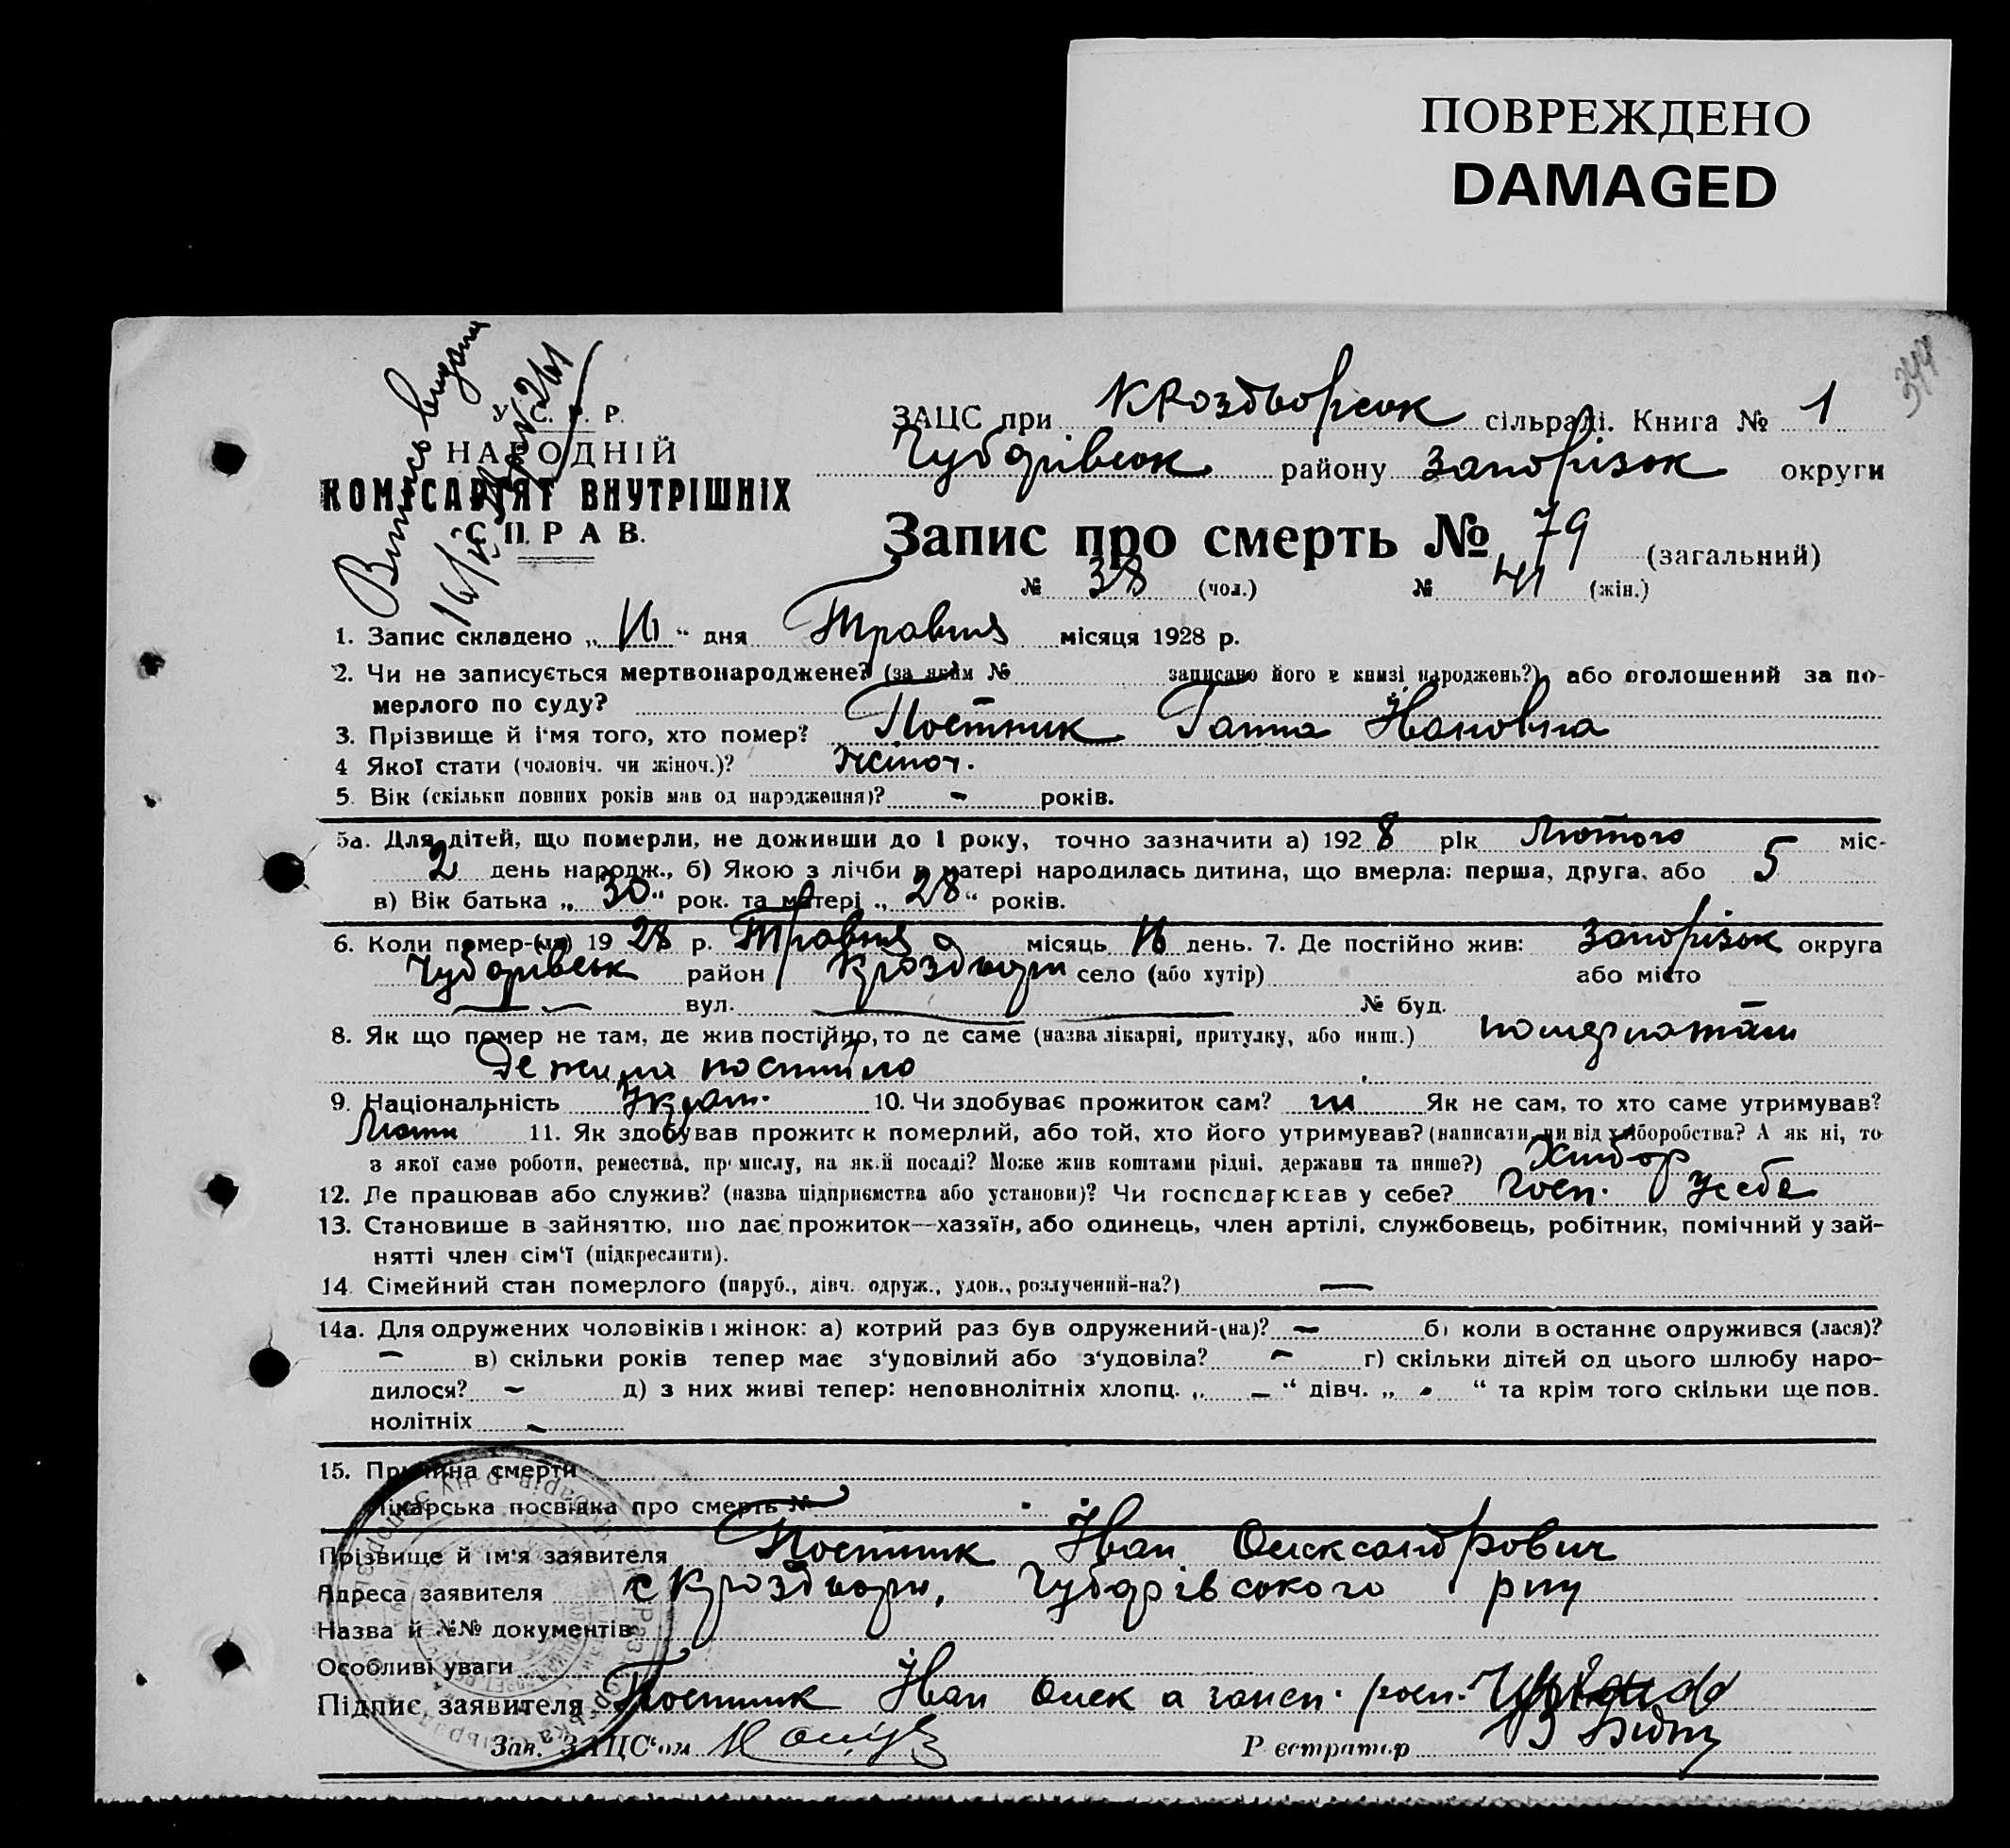 ПОВРЕЖДЕНО
DAMAGED
344
Випись видана
У. С. Р. Р.
НАРОДНІЙ
КОМІСАРІЯТ ВНУТРІШНІХ
СПРАВ.
ЗАЦС при КРоздворсок сільраді. Книга № 1
Чубарівськ району Запорізьк округи
Запис про смерть № 79 (загальний)
№ 38 (чол.) № 41 (жін.)
1. Запис складено „ 16 “ дня Травня місяця 1928 р.
2. Чи не записується мертвонароджене? (за яким № записано його в книзі народжень?) або оголошений за по-
мерлого по суду?
3. Прізвище й ім'я того, хто помер? Постник Ганна Івановна
4 Якої стати (чоловіч. чи жіноч.)? жіноч.
5. Вік (скільки повних років мав од народження)? - років.
5а. Для дітей, що померли, не доживши до 1 року, точно зазначити а) 1928 рік Лютого міс-
2 день народж., б) Якою з лічби в матері народилась дитина, що вмерла: перша, друга, або 5
в) Вік батька „ 30 “ рок. та матері „ 28 “ років.
6. Коли помер-(ла) 1928 р. Травня місяць 16 день. 7. Де постійно жив: Запорізьк округа
Чубарівськ район Кроздвори село (або хутір) або місто
вул. № буд.
8. Як що помер не там, де жив постійно, то де саме (назва лікарні, притулку, або инш.) померла там
де жила постійно
9. Національність Україн. 10. Чи здобуває прожиток сам? ні Як не сам, то хто саме утримував?
11. Як здобував прожиток померлий, або той, хто його утримував? (написати, чи від хліборобства? А як ні, то
з якої само роботи, ремества, промислу, на якій посаді? Може жив коштами рідні, держави та инше?) Хлібор
12. Де працював або служив? (назва підприємства або установи)? Чи господарював у себе? Госп. у себе
13. Становище в зайняттю, що дає прожиток—хазяїн, або одинець, член артілі, службовець, робітник, помічний у зай-
нятті член сім'ї (підкреслити).
14. Сімейний стан померлого (паруб., дівч. одруж., удов., розлучений-на?) —
14а. Для одружених чоловіків і жінок: а) котрий раз був одружений-(на)? - б) коли в останнє одружився (лася)?
- в) скільки років тепер має з'удовілий або з'удовіла? - г) скільки дітей од цього шлюбу наро-
дилося? - д) з них живі тепер: неповнолітніх хлопц. „ - “ дівч. „ - “ та крім того скільки ще пов.
нолітніх -
15. Причина смерти
Лікарська посвідка про смерть №
Прізвище й ім'я заявителя Постник Іван Олександрович
Адреса заявителя с Кроздвори, Чубарівського рну
Назва й №№ документів
Особливі уваги
Підпис заявителя Постник Іван Олек а
Зав. ЗАЦС'ом
Реєстратор